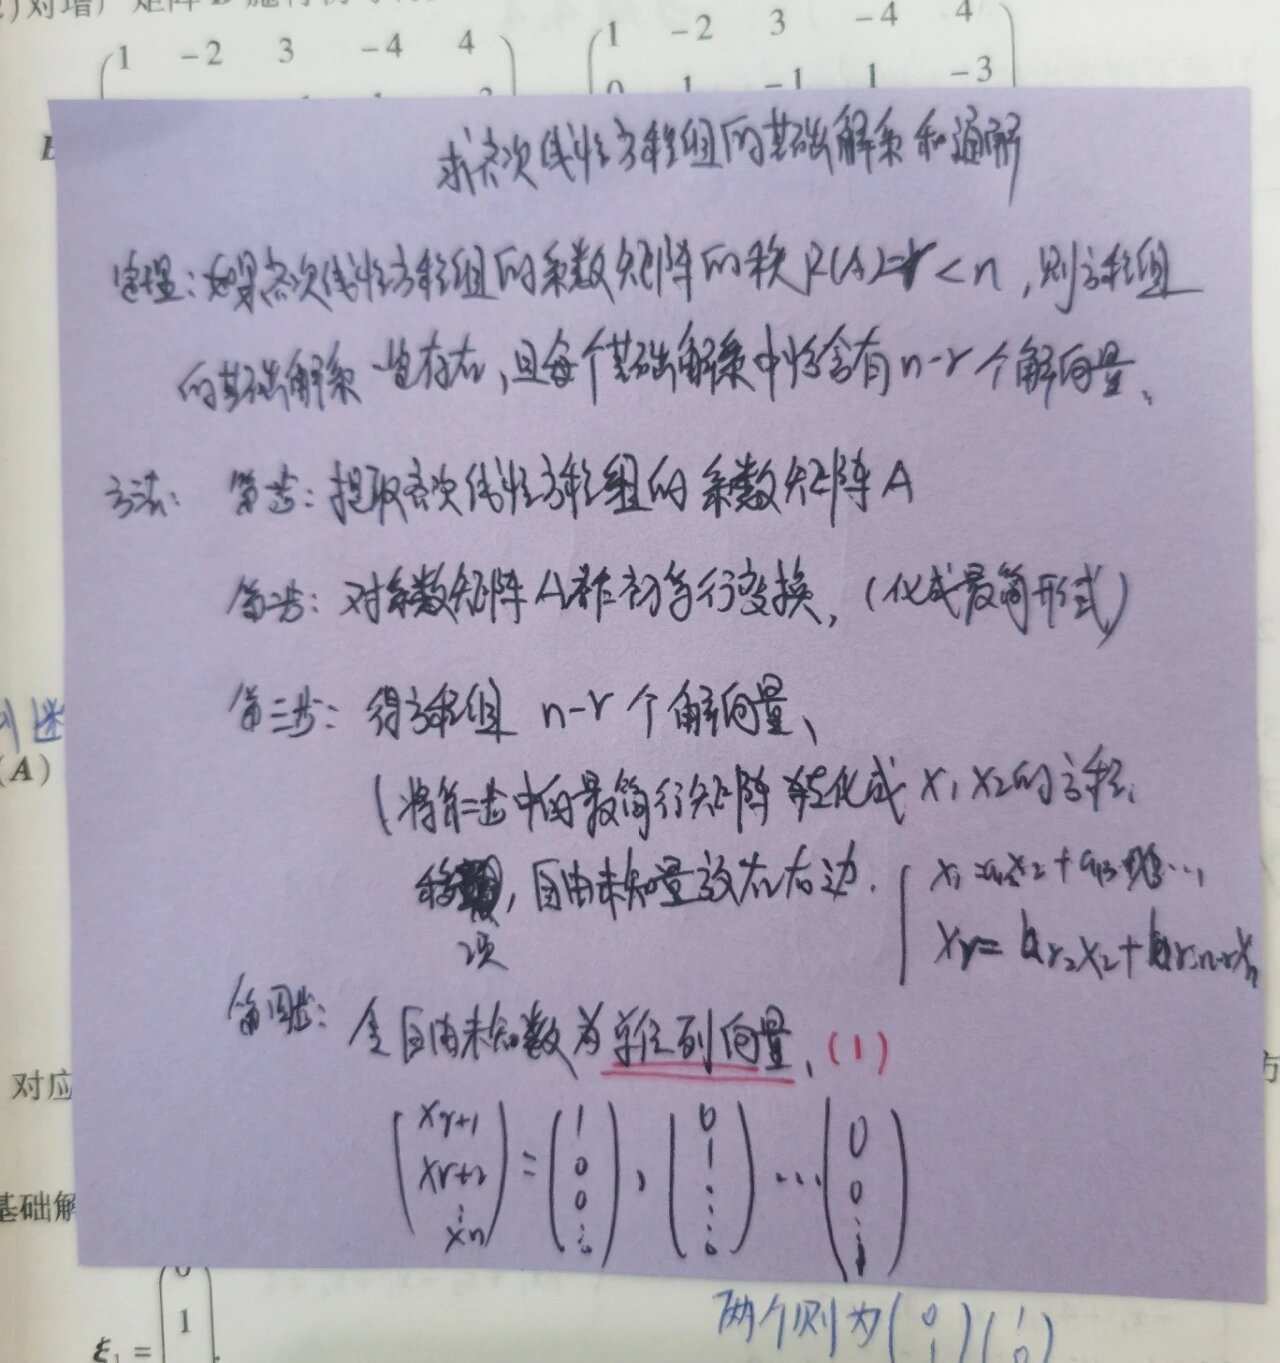 对增广矩阵
1 -2 3 -4 4
1 -2 3 -4 4
0 1 -1 1 -3
求齐次线性方程组的基础解系和通解
定理:如果齐次线性方程组的系数矩阵的秩R(A)=r<n,则方程组
的基础解系一定存在,且每个基础解系中恰含有n-r个解向量、
方法: 第一步:提取齐次线性方程组的系数矩阵A
第二步: 对系数矩阵A作初等行变换,(化成最简形式)
第三步: 得方程组 n-r个解向量、
(A)
(将第二步中的最简行矩阵转化成 x₁ x₂的方程.
移项,自由未知量放在右边.
xr= ar₂x₂+
第四步: 令自由未知数为单位列向量、(1)
对应
(xr+1 xr+2 ⋮ xn) = (1 0 0 ⋮ 0), (0 1 ⋮ 0) ... (0 0 ⋮ 1)
基础解
两个则为(0 1)(1 0)
ξ₁ = (0 1